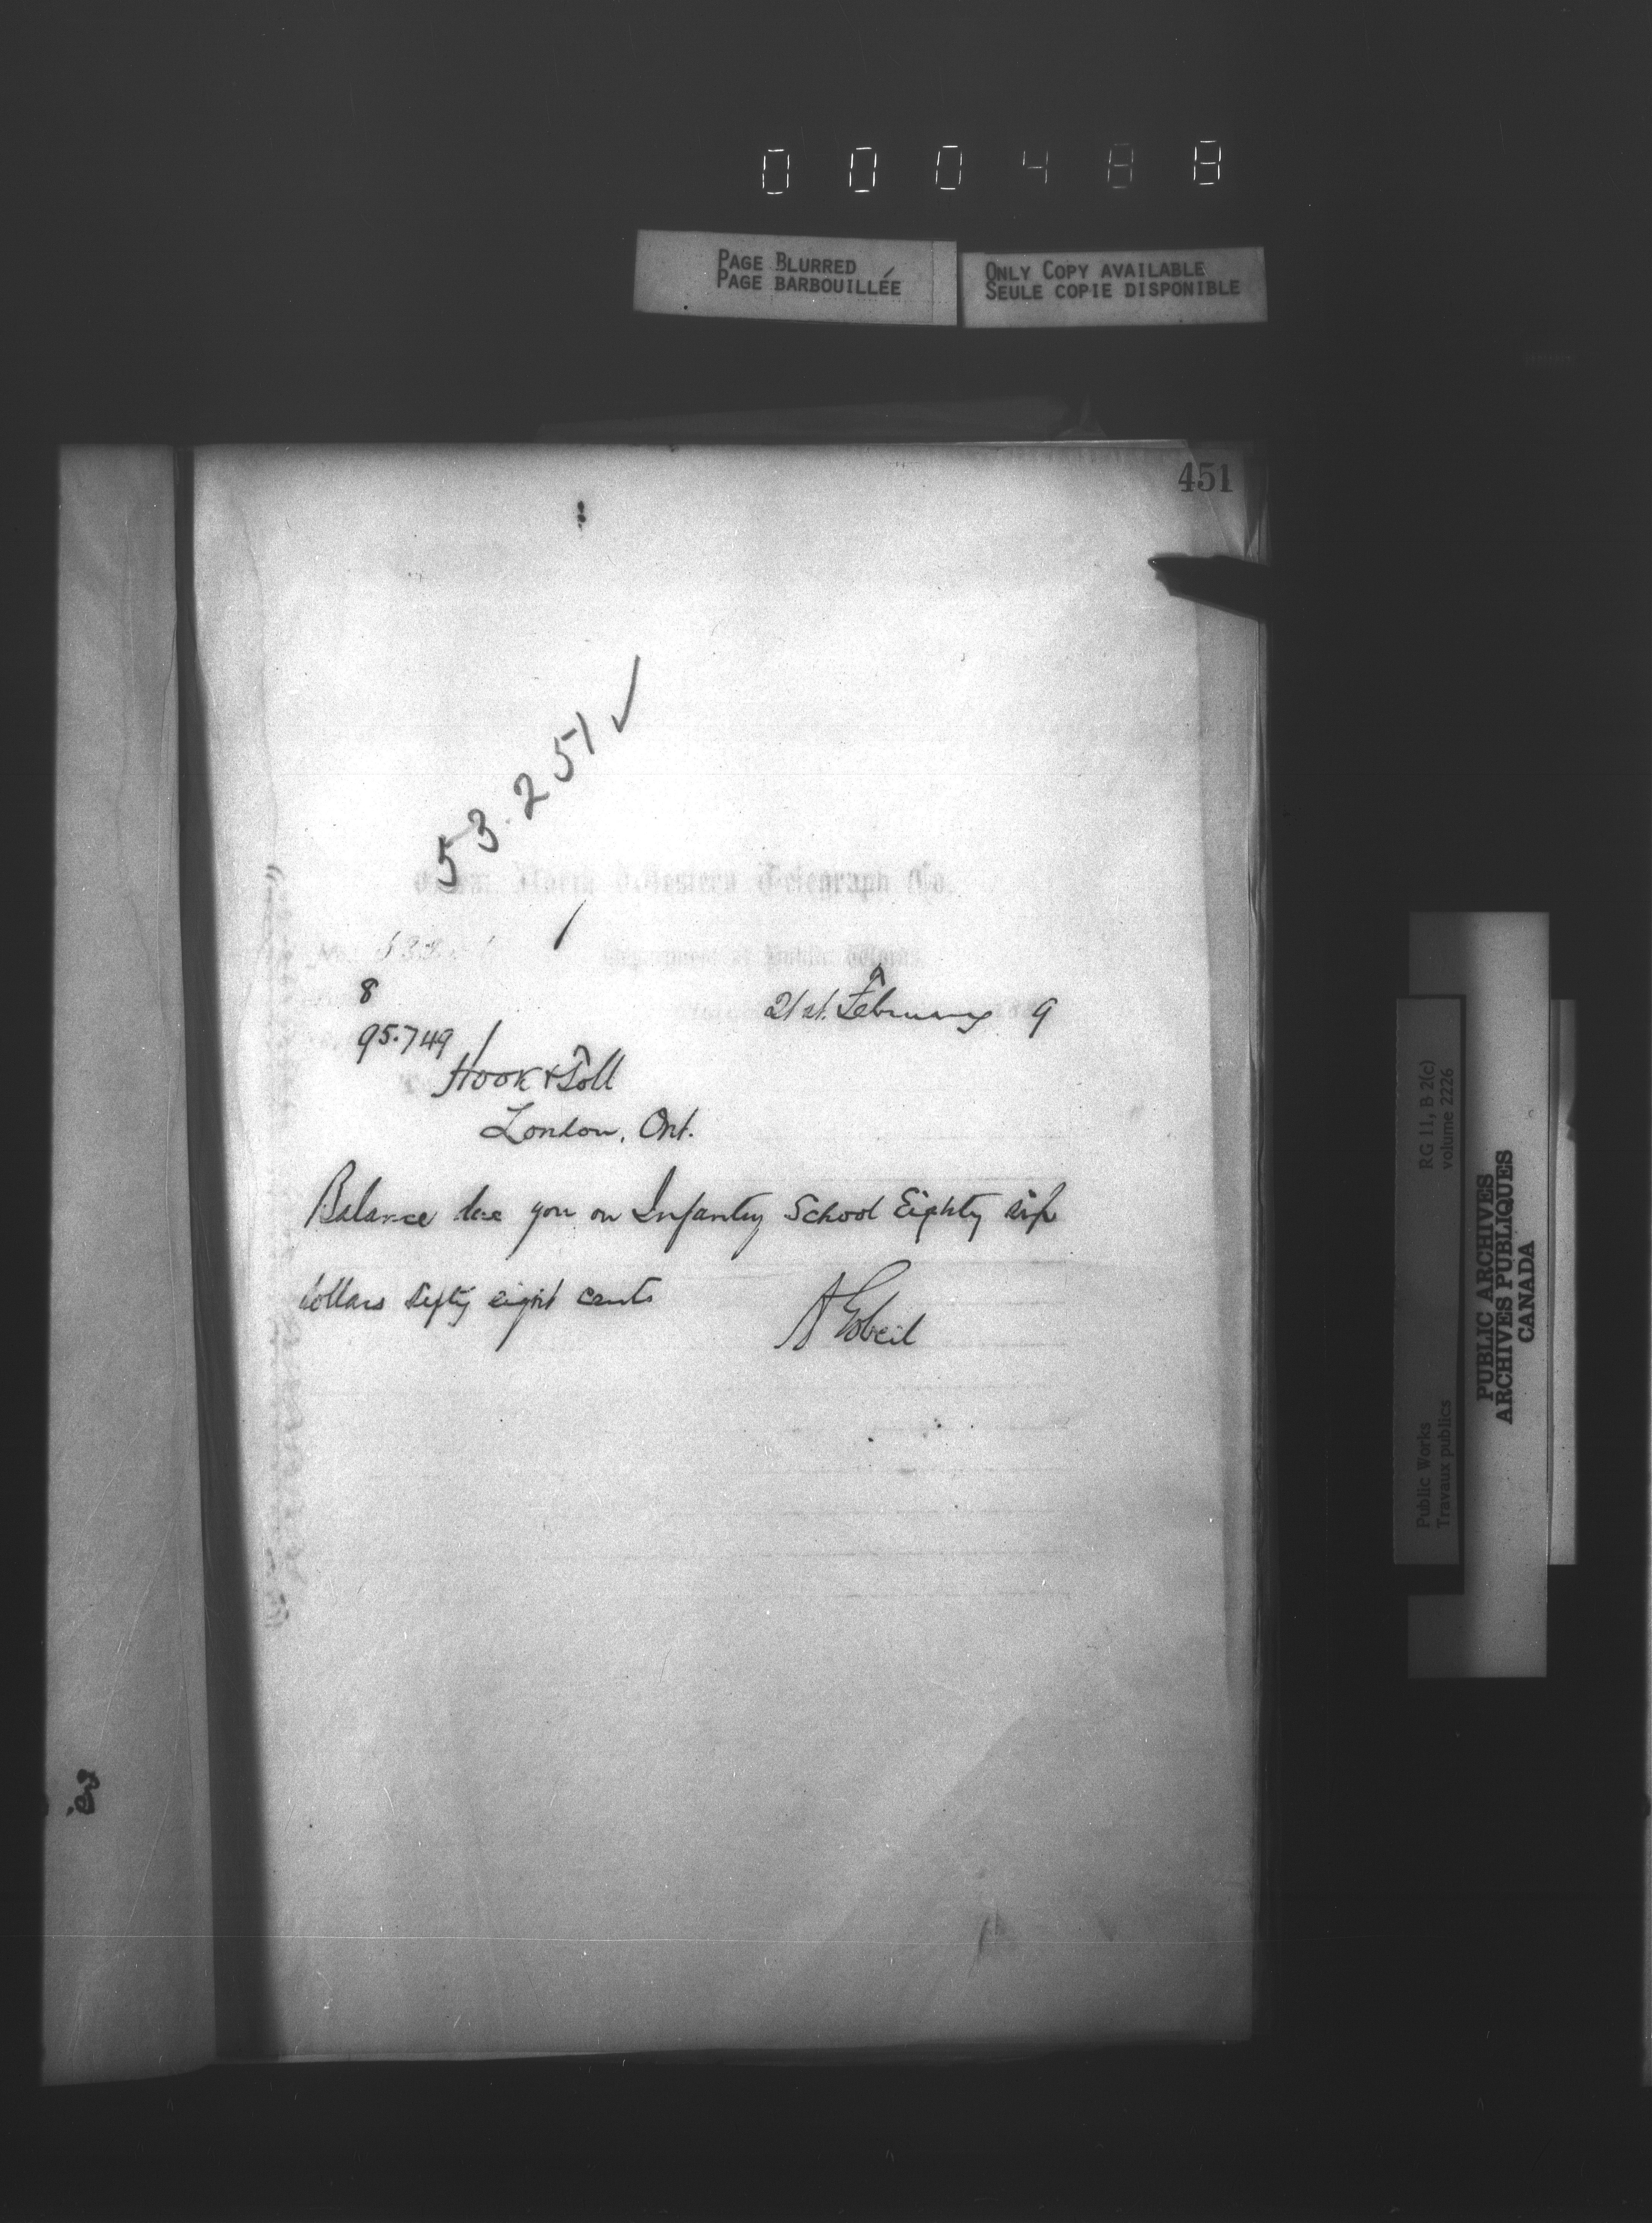 000488
PAGE BLURRED
PAGE BARBOUILLÉE
ONLY COPY AVAILABLE
SEULE COPIE DISPONIBLE
451
53.251 ✓
Great North Western Telegraph Co.
Department of Public Works
8
21st. February 9
95.749
Hook & Toll
London, Ont.
Balance due you on Infantry School Eighty six
dollars fifty eight cents
A Gobeil
Public Works
Travaux publics
RG 11, B 2(c)
volume 2226
PUBLIC ARCHIVES
ARCHIVES PUBLIQUES
CANADA